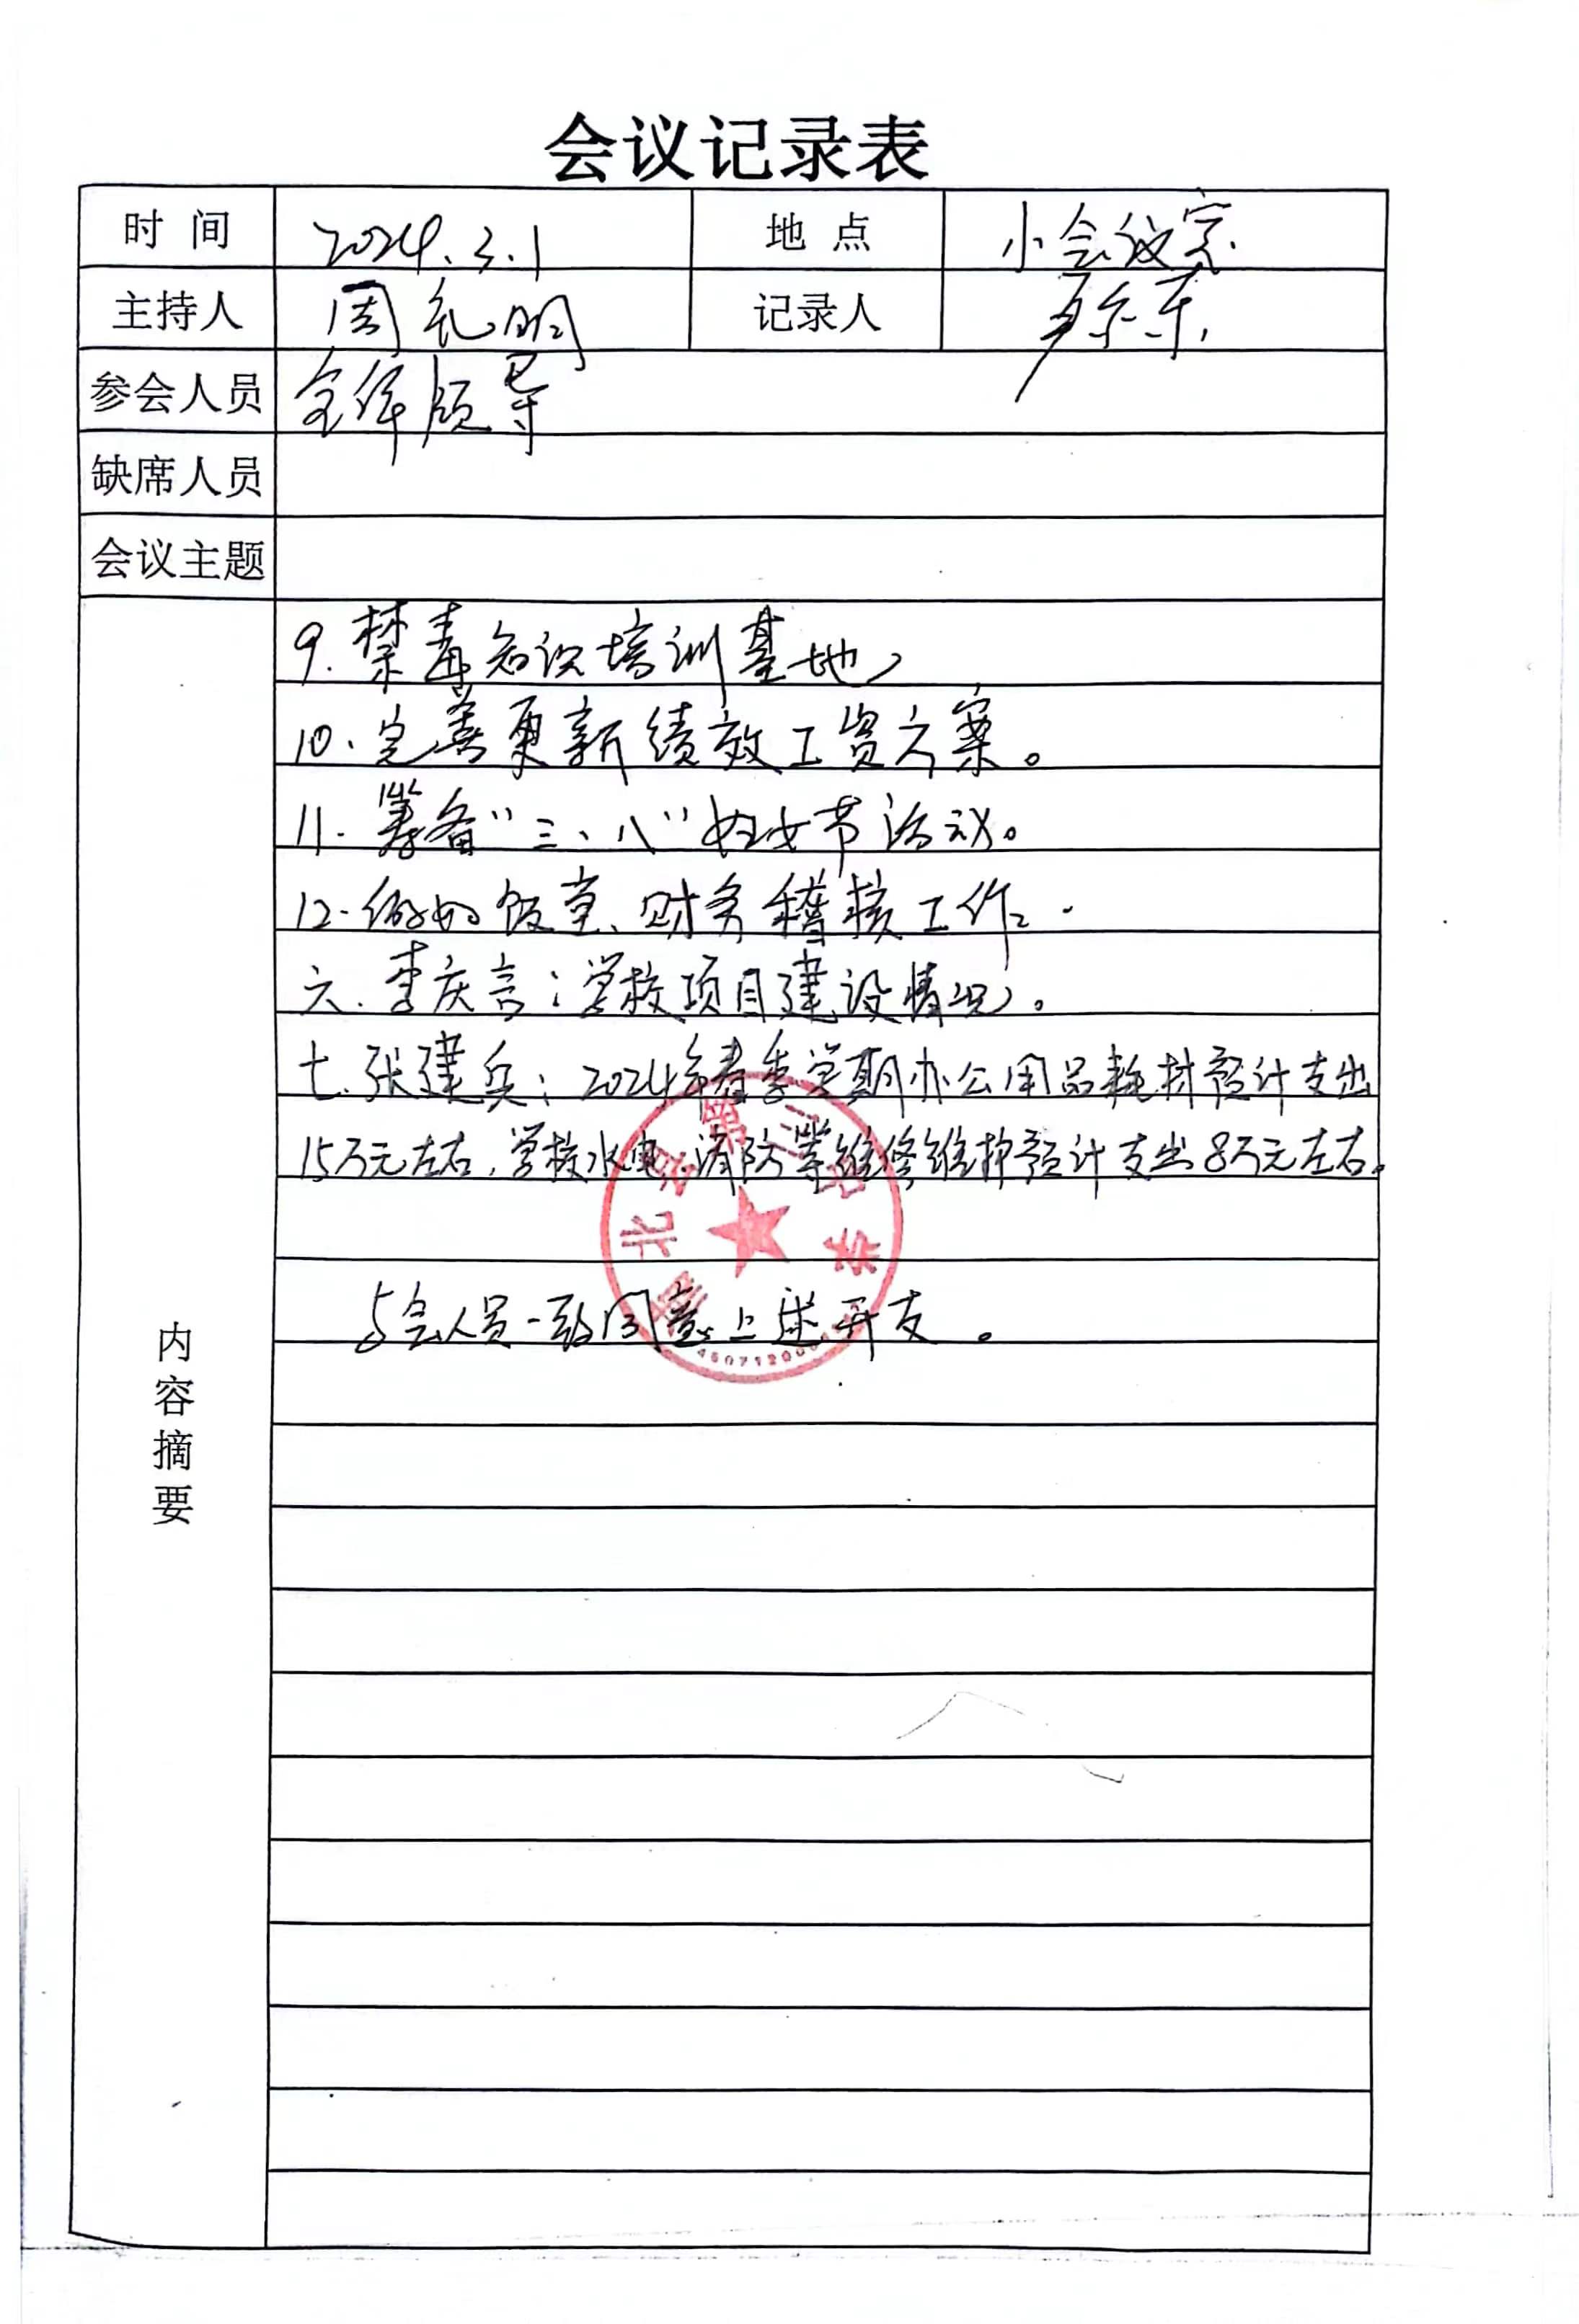 会议记录表
时 间 2024.3.1 地 点 小会议室
主持人 周礼明 记录人
参会人员 全体领导
缺席人员
会议主题
内容摘要
9. 禁毒知识培训基地
10. 完善更新绩效工资方案。
11. 筹备“三、八”妇女节活动。
12. 做好饭堂、财务稽核工作.
六. 李庆言：学校项目建设情况。
七. 张建兵：2024年春季学期办公用品耗材预计支出
15万元左右，学校水电、消防等维修维护预计支出8万元左右。
与会人员一致同意上述开支。
北 县 第 三 中 学